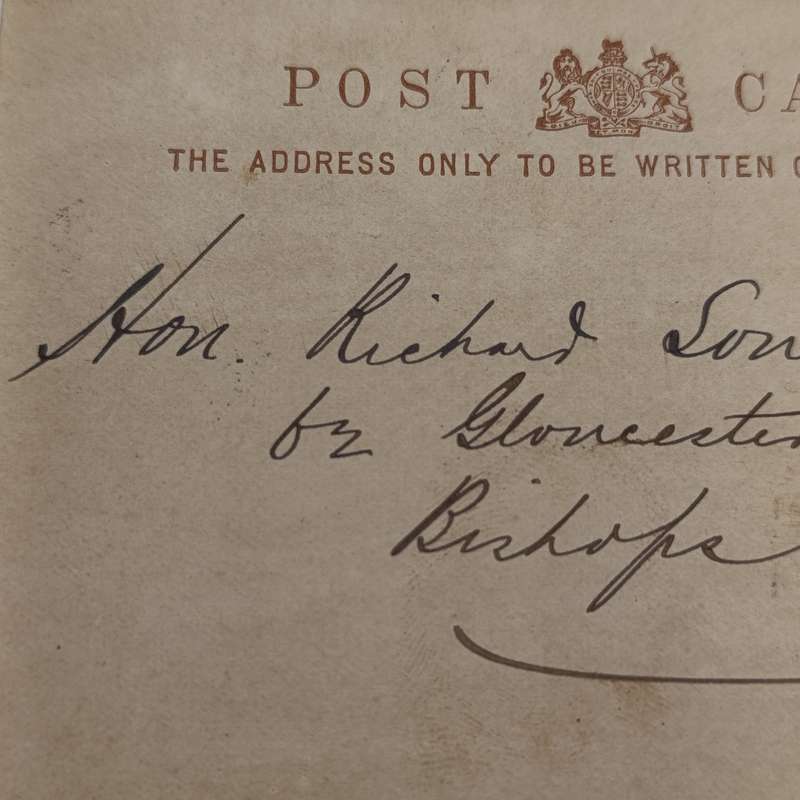 POST CA
THE ADDRESS ONLY TO BE WRITTEN O
Hon. Richard Son
62 Gloucester
Bishops